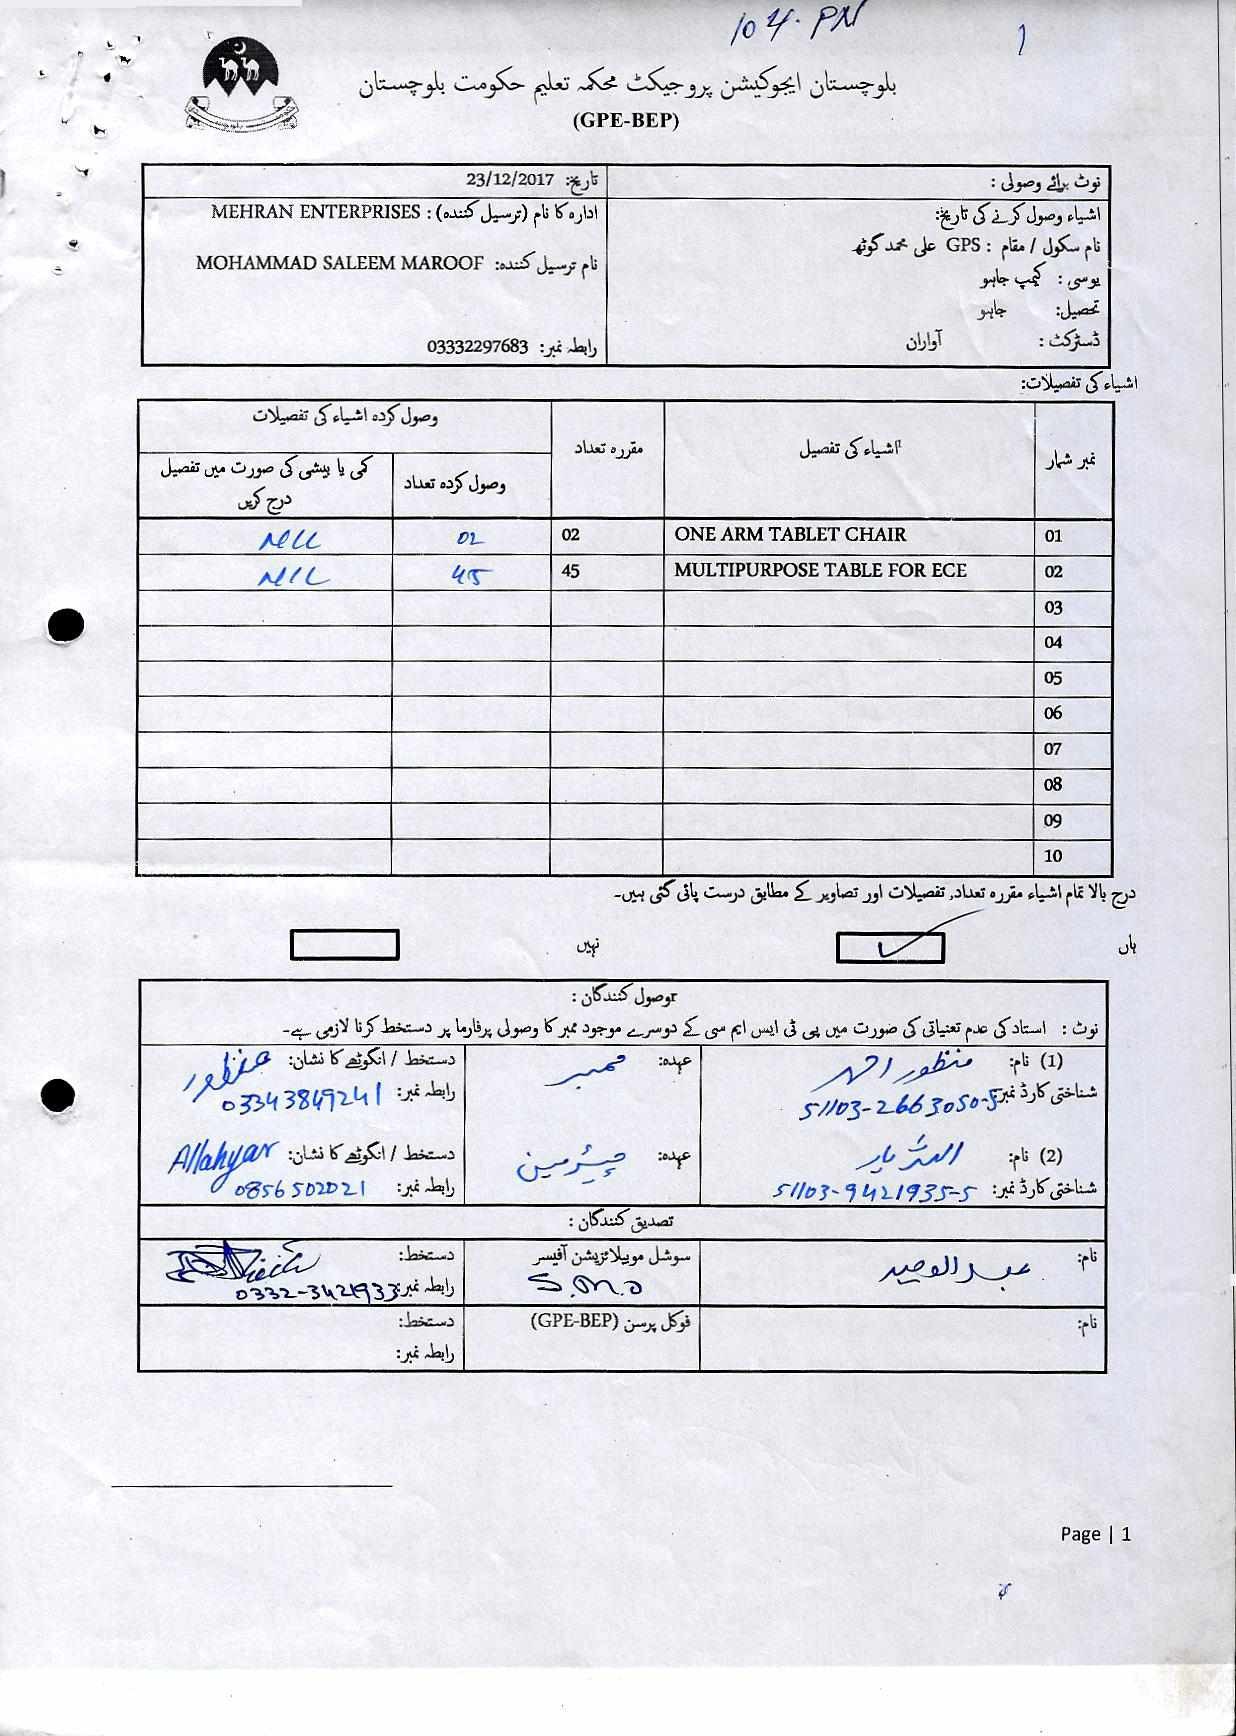 104-PN
1
بلوچستان ایجوکیشن پروجیکٹ محکمہ تعلیم حکومت بلوچستان
(GPE-BEP)
نوٹ برائے وصولی :
تاریخ: 23/12/2017
اشیاء وصول کرنے کی تاریخ:
نام سکول / مقام : GPS علی محمد گوٹھ
یوسی : کیمپ جاہو
تحصیل: جاہو
ڈسٹرکٹ : آواران
ادارہ کا نام (ترسیل کنندہ) : MEHRAN ENTERPRISES
نام ترسیل کنندہ: MOHAMMAD SALEEM MAROOF
رابطہ نمبر: 03332297683
اشیاء کی تفصیلات:
نمبر شمار اشیاء کی تفصیل مقررہ تعداد وصول کردہ اشیاء کی تفصیلات
وصول کردہ تعداد کمی یا بیشی کی صورت میں تفصیل درج کریں
01 ONE ARM TABLET CHAIR 02 02 NIL
02 MULTIPURPOSE TABLE FOR ECE 45 45 NIL
03
04
05
06
07
08
09
10
درج بالا تمام اشیاء مقررہ تعداد, تفصیلات اور تصاویر کے مطابق درست پائی گئی ہیں۔
ہاں ✓ نہیں
وصول کنندگان :
نوٹ : استاد کی عدم تعنیاتی کی صورت میں پی ٹی ایس ایم سی کے دوسرے موجود ممبر کا وصولی پرفارما پر دستخط کرنا لازمی ہے۔
(1) نام: منظور احمد عہدہ: ممبر دستخط / انگوٹھے کا نشان: منظور
شناختی کارڈ نمبر: 51103-2663050-5 رابطہ نمبر: 03343849241
(2) نام: اللہ یار عہدہ: چیئرمین دستخط / انگوٹھے کا نشان: Allahyar
شناختی کارڈ نمبر: 51103-9421935-5 رابطہ نمبر: 0856502021
تصدیق کنندگان :
نام: عبدالوحید سوشل موبیلائزیشن آفیسر دستخط:
S.M.O رابطہ نمبر: 0332-3421933
نام: فوکل پرسن (GPE-BEP) دستخط:
رابطہ نمبر:
Page | 1